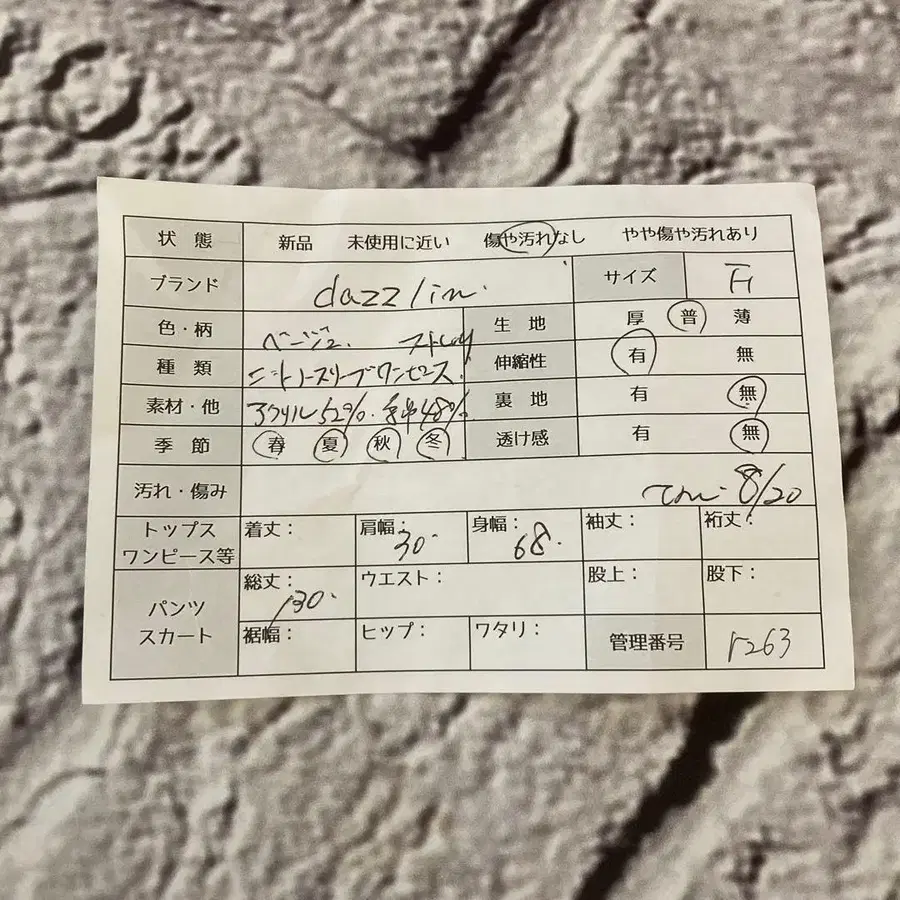 状 態 新品 未使用に近い 傷や汚れなし やや傷や汚れあり
ブランド dazzlin. サイズ F
色・柄 ベージュ. 生 地 厚 普 薄
種 類 ニットノースリーブワンピース. 伸縮性 有 無
素材・他 アクリル52%. 48% 裏 地 有 無
季 節 春 夏 秋 冬 透け感 有 無
汚れ・傷み 8/20
トップス
ワンピース等 着丈: 肩幅: 30. 身幅: 68. 袖丈: 裄丈:
パンツ
スカート 総丈: 130. ウエスト: 股上: 股下:
裾幅: ヒップ: ワタリ: 管理番号 r263